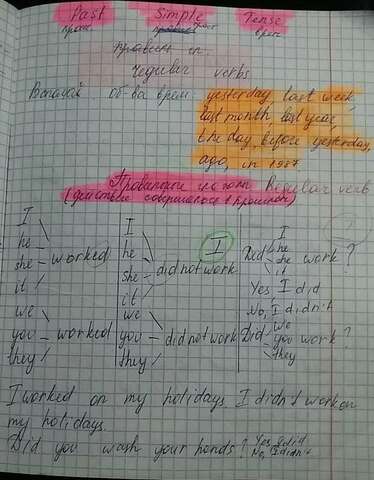 Past Simple Tense
regular verbs
yesterday, last week,
last month, last year,
the day before yesterday,
ago, in 1987
Regular verb
(действие совершилось в прошлом)
I
he
she worked
it
we
you worked
they
I
he
she did not work
it
we
you did not work
they
I
I
Did he work?
she
it
Yes, I did
No, I didn't
Did we
you work?
they
I worked on my holidays I didn't work on
my holidays
Did you wash your hands? Yes, I did
No, I didn't